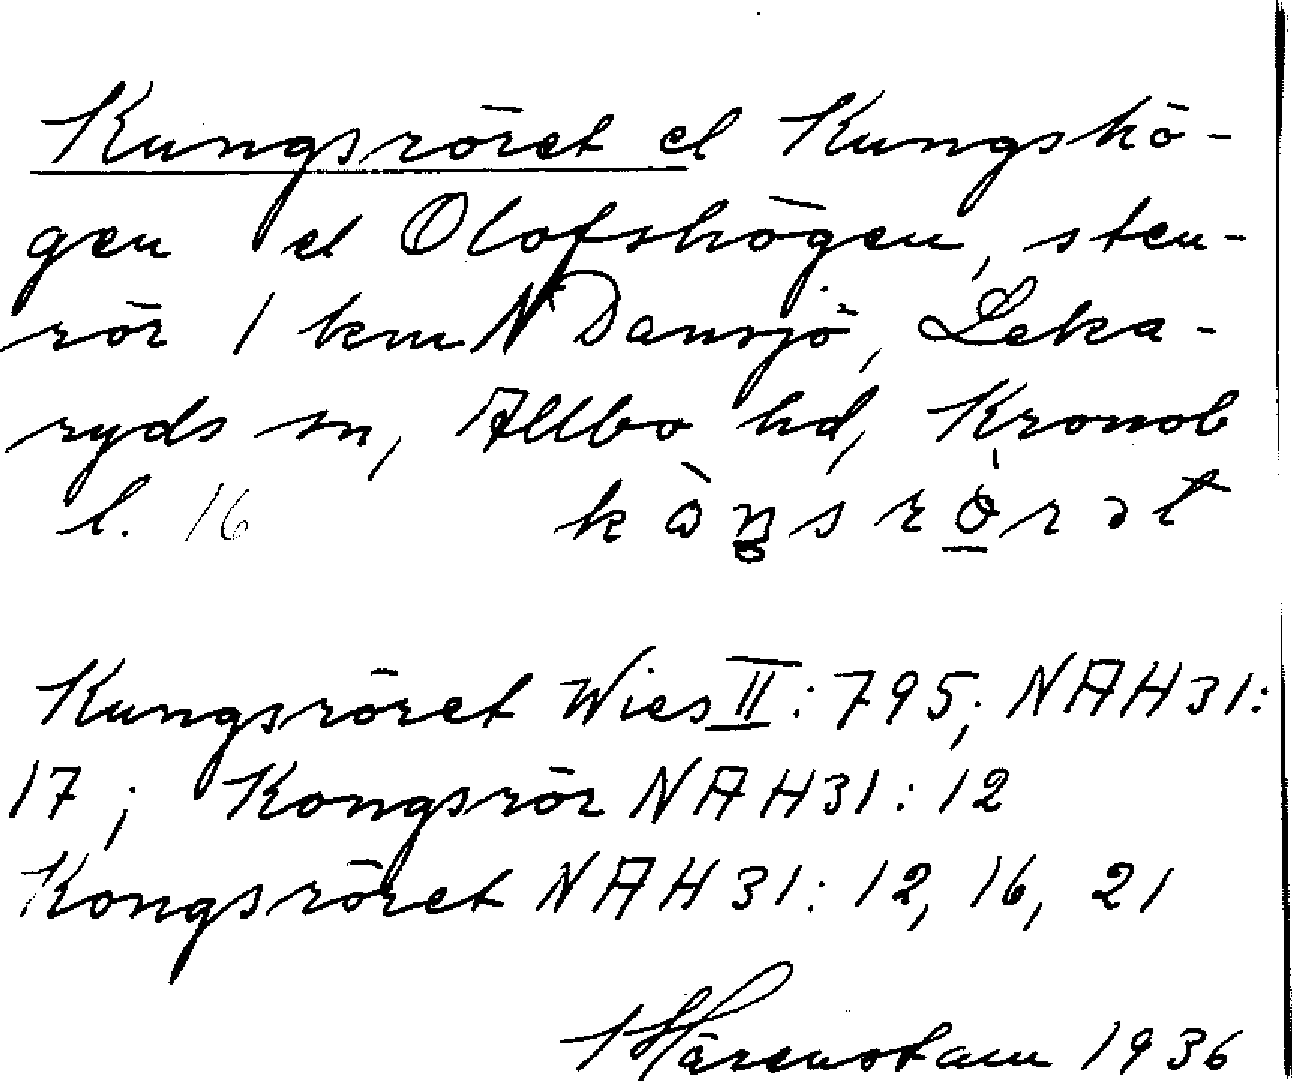 Kungsröret el Kungshö-
gen el Olofshögen, sten-
rör 1 km N Dansjö, Leka-
ryds sn, Allbo hd, Kronob
l. 16 kòŋsrörət
Kungsröret Wies II: 795; NAH 31:
17; Kongsrör NAH 31: 12
Kongsröret NAH 31: 12, 16, 21
Härenstam 1936